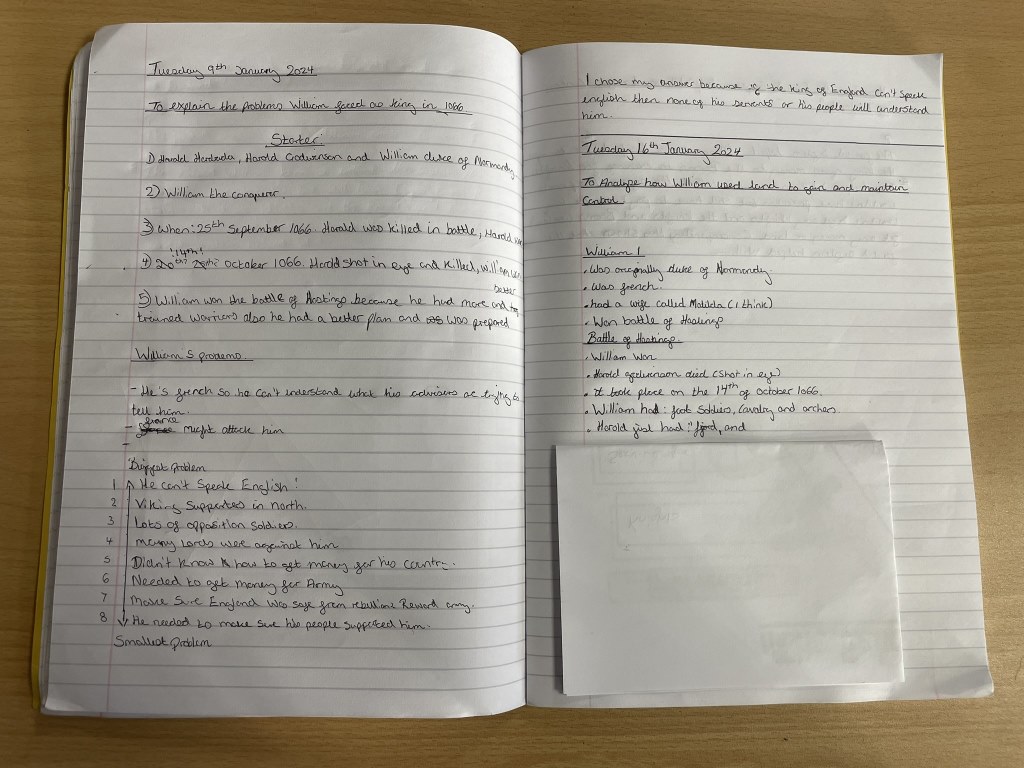 Tuesday 9th January 2024
To explain the problems William faced as king in 1066
Starter:
1) Harald Hardrada, Harold Godwinson and William duke of Normandy
2) William the conqueror.
3) When: 25th September 1066. Harold was killed in battle, Harold
'14th'
4) October 1066. Harold shot in eye and killed, William
better
5) William won the battle of Hastings because he had more and
trained warriors also he had a better plan and was prepared
William's problems.
- He's french so he can't understand what his advisers are trying to
tell him.
france
- might attack him
-
Biggest problem
1 He can't speak English!
2 Viking supporters in north.
3 Lots of opposition soldiers.
4 many lords were against him
5 Didn't know how to get money for his country.
6 Needed to get money for Army
7 Make sure England was safe from rebellions Reward army.
8 He needed to make sure his people supported him.
Smallest problem
I chose my answer because if the king of England can't speak
english then none of his servants or his people will understand
him.
Tuesday 16th January 2024
To Analyse how William used land to gain and maintain
control
William 1
• Was originally duke of Normandy
• Was french.
• had a wife called Matilda (i think)
• Won battle of Hastings
Battle of Hastings.
• William Won
• Harold godwinson died (shot in eye)
• it took place on the 14th of october 1066.
• William had: foot soldiers, cavalry and archers
• Harold just had: fyrd, and